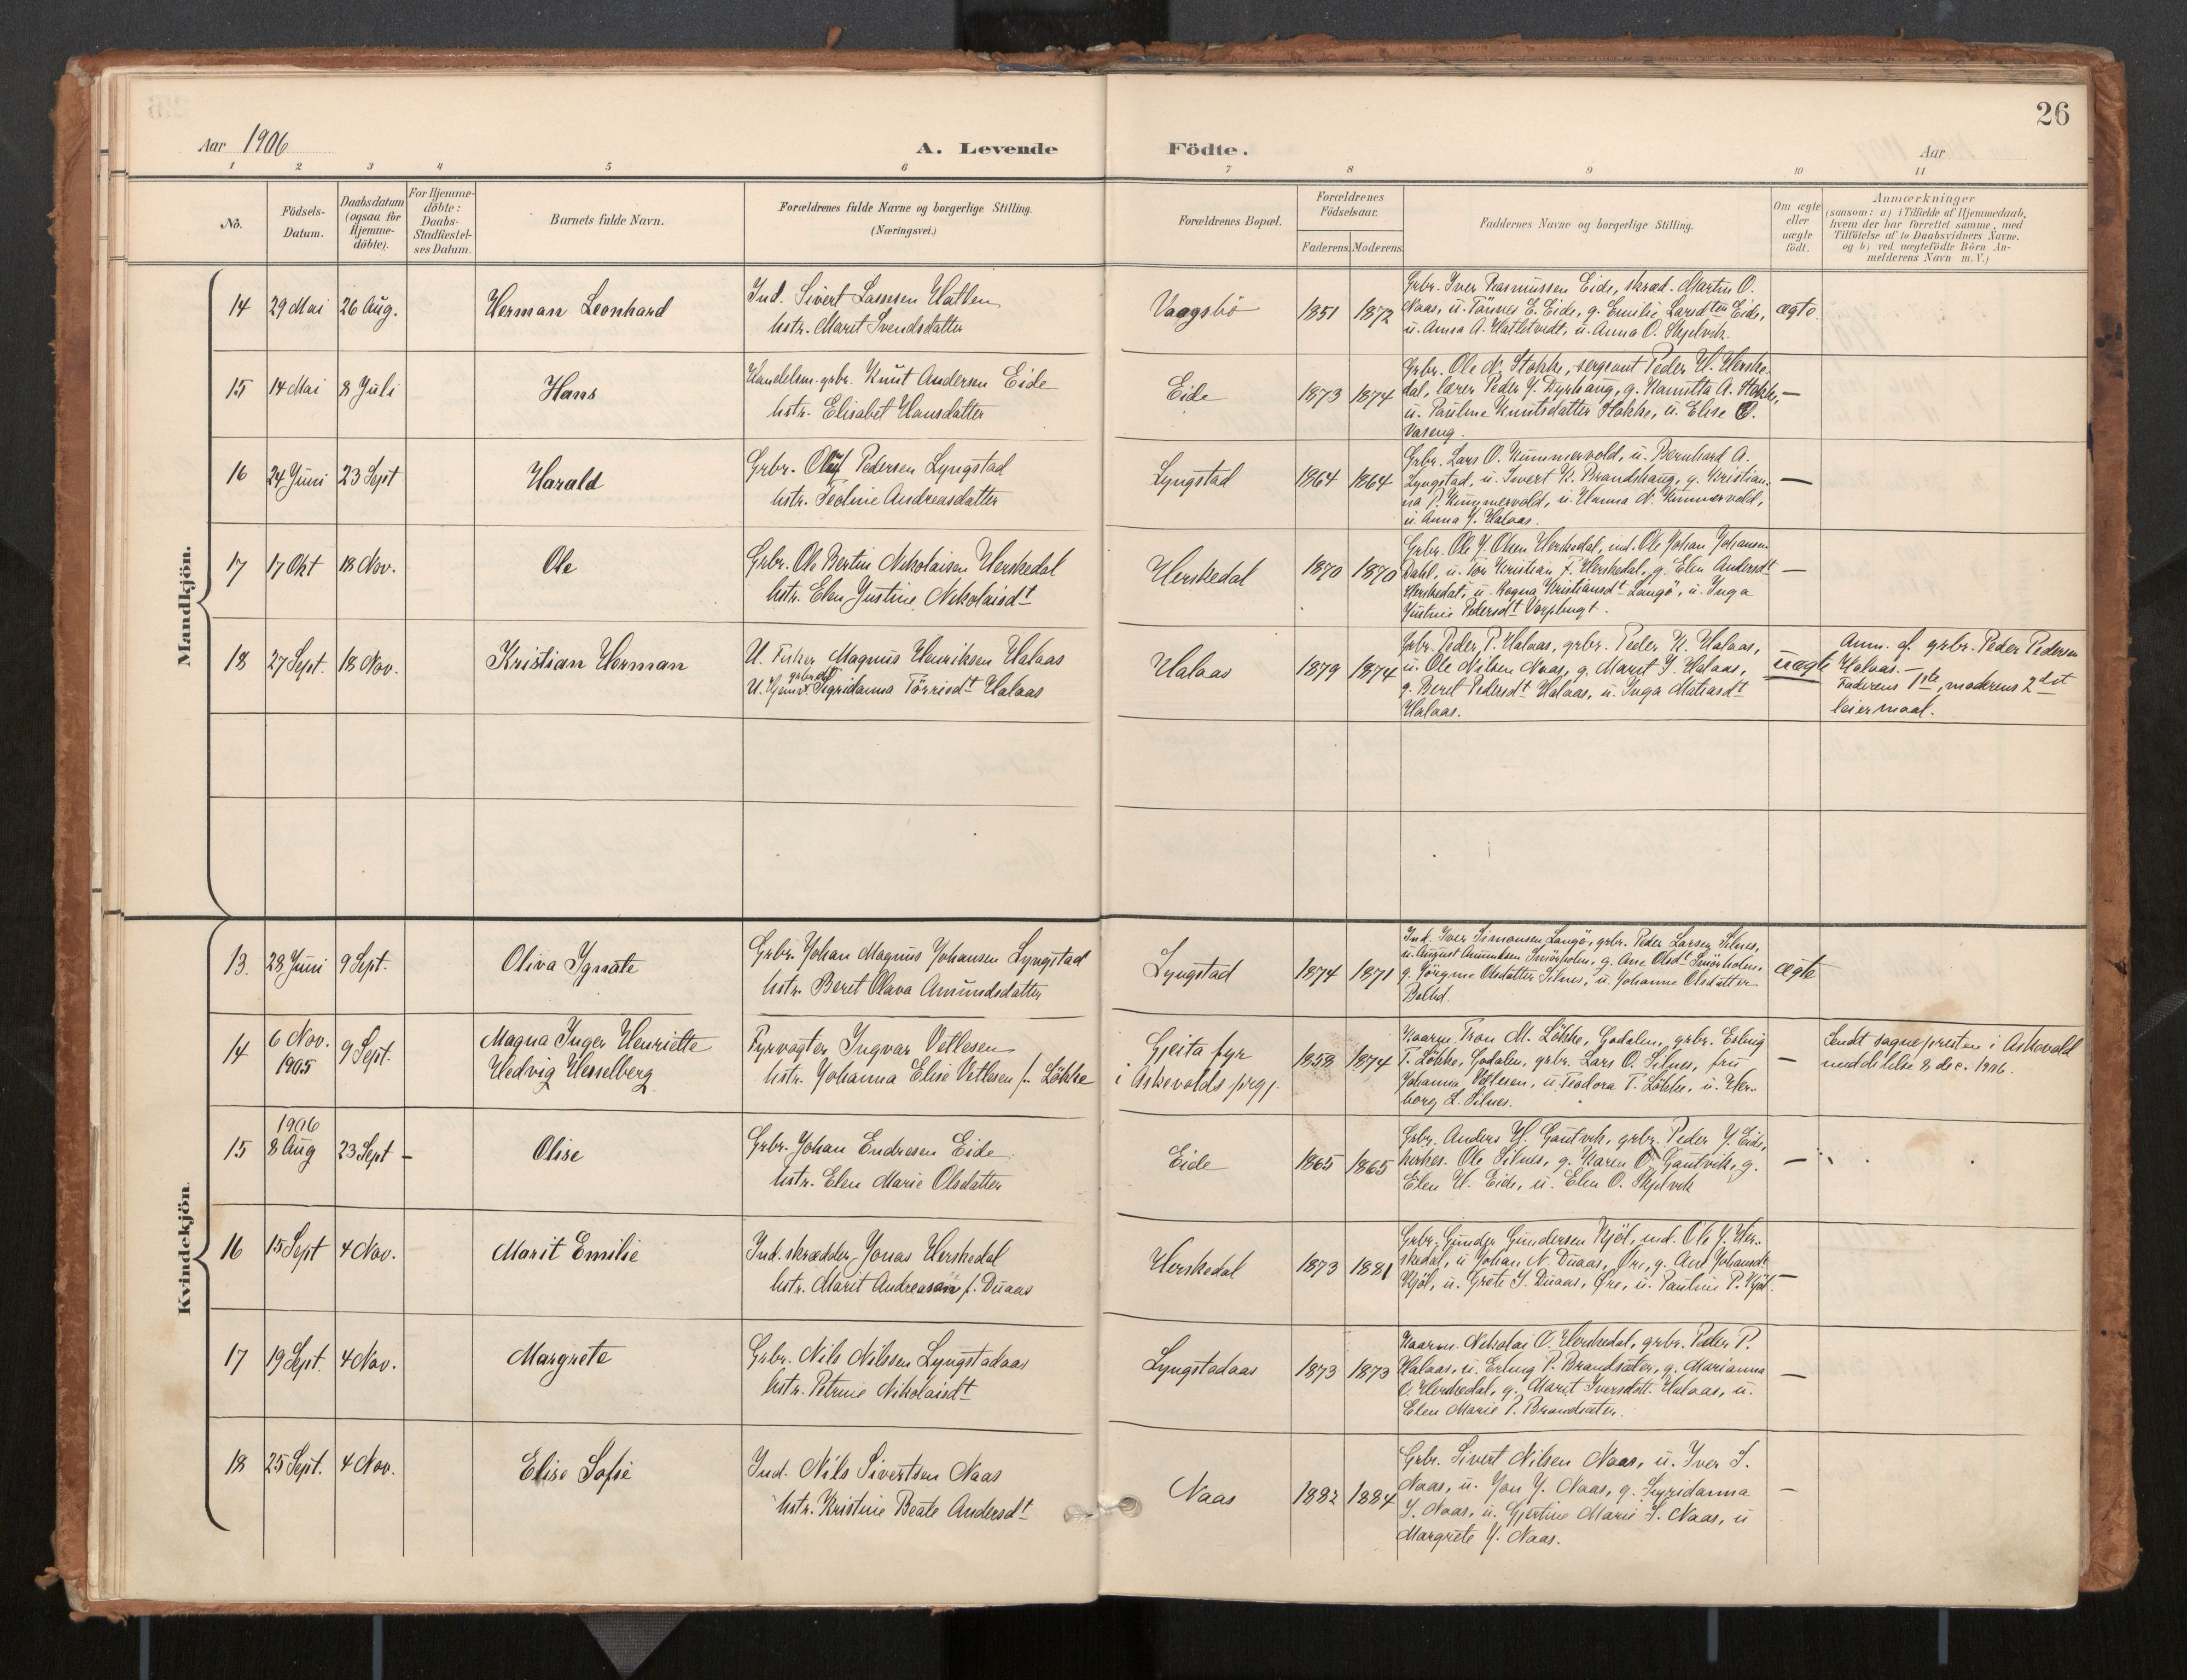 26
Aar 1906
A. Levende Födte.
Aar
1 2 3 4 5 6 7 8 9 10 11
No.
Födsels-
Datum.
Daabsdatum
(ogsaa for
Hjemme-
döbte).
For Hjemme-
döbte:
Daabs-
Stadfæstel-
ses Datum.
Barnets fulde Navn.
Forældrenes fulde Navne og borgerlige Stilling.
(Næringsvei.)
Forældrenes Bopæl.
Forældrenes
Födselsaar.
Faderens. Moderens.
Faddernes Navne og borgerlige Stilling.
Om ægte
eller
uægte
födt.
Anmærkninger
(saasom: a) i Tilfælde af Hjemmedaab,
hvem der har forrettet samme, med
Tilföielse af to Daabsvidners Navne.
og b) ved uægtefödte Börn An-
melderens Navn m.V.)
Mandkjön.
14 29 Mai 26 Aug. Herman Leonhard
Ind. Sivert Larssen Hatlen
hstr. Marit Svendsdatter
Vaagsbö 1851 1872
Grbr. Iver Rasmussen Eide, skræd. Martin O.
Naas, u. Tönnes E. Eide, g. Emilie Larsdtr Eide,
u. Anna A. Hatletvedt, u. Anna O. Skjelvik.
ægte
15 14 Mai 8 Juli Hans
Handelsm. grbr. Knut Andersen Eide
hstr. Elisabet Hansdatter
Eide 1873 1874
Grbr. Ole N. Stokke, sergeant Peder H. Herske-
dal, lærer Peder J. Dyrhaug, g. Kamilla A. Stokke,
u. Pauline Knutsdatter Stokke, u. Elise O.
Vaseng.
—
16 24 Juni 23 Sept Harald
Grbr. Oluf Pedersen Lyngstad
hstr. Teoline Andreasdatter
Lyngstad 1864 1864
Grbr. Lars O. Kummervold, u. Bernhard A.
Lyngstad, u. Sivert K. Brandshaug, g. Kristian-
na P. Kummervold, u. Hanna N. Kummervold,
u. Anna J. Halaas.
—
17 17 Okt 18 Nov. Ole
Grbr. Ole Bertin Nikolaisen Herskedal
hstr. Elen Justine Nikolaisdt
Herskedal 1870 1870
Grbr. Ole J. Olsen Herskedal, ind. Ole Johan Johansen
Dahl, u. Tor Kristian F. Herskedal, g. Elen Andersdt
Herskedal, u. Ragna Kristiansdt Langö, u. Inga
Justine Pedersdt Varpbugt.
—
18 27 Sept. 18 Nov. Kristian Herman
U. Fisker Magnus Henriksen Halaas
grbr.dtr
U. Hjemv. Sigridanna Törrisdt Halaas
Halaas 1879 1874
Grbr. Peder P. Halaas, grbr. Peder K. Halaas,
u. Ole Nilsen Naas, g. Marit J. Halaas,
g. Beret Pedersdt Halaas, u. Inga Matiasdt
Halaas.
uægte
Anm. af grbr. Peder Pedersen
Halaas. —
Faderens 1ste, moderens 2det
leiermaal.
Kvindekjön.
13. 28 Juni 9 Sept. Oliva Ignate
Grbr. Johan Magnus Johansen Lyngstad
hstr. Beret Olava Amundsdatter
Lyngstad 1874 1871
Ind. Iver Simonsen Langö, grbr. Peder Larsen Silnes,
u. August Amundsen Smörholm, g. Ane Olsdt Smörholm,
g. Jörgine Olsdatter Silnes, u. Johanne Olsdatter
ægte
14 6 Nov.
1905 9 Sept.
Magna Inger Henriette
Hedvig Hesselberg
Fyrvogter Ingvar Vetlesen
hstr. Johanna Elise Vetlesen f. Lökke
Gjeita fyr
i Askevolds prgj.
1858 1874
Kaarm. Tron M. Lökke, Godalen, grbr. Erling
T. Lökke, Godalen, grbr. Lars O. Silnes, fru
Johanna Vetlesen, u. Teodora T. Lökke, u. Her-
borg L. Silnes.
—
Sendt sognepresten i Askevold
meddelelse 8 dec. 1906.
1906
15 8 Aug 23 Sept — Olise
Grbr. Johan Endresen Eide
hstr. Elen Marie Olsdatter
Eide 1865 1865
Grbr. Anders H. Gautvik, grbr. Peder J. Eide,
kirkes. Ole Silnes, g. Karen O. Gautvik, g.
Elen H. Eide, u. Elen O. Skjelvik
—
16 15 Sept 4 Nov. Marit Emilie
Ind. skrædder Jonas Herskedal
hstr. Marit Andreasen f. Duaas
Herskedal 1873 1881
Grbr. Gunder Gundersen Kjöl, ind. Ole J. Her-
skedal, u. Johan N. Duaas, Öre, g. Ane Johansdt
Kjöl, u. Grete I. Duaas, Öre, u. Pauline P. Kjöl.
—
17 19 Sept. 4 Nov. Margrete
Grbr. Nils Nilssen Lyngstadaas
hstr. Petrine Nikolaisdt
Lyngstadaas 1873 1873
Kaarm. Nikolai O. Herskedal, grbr. Peder P.
Halaas, u. Erling P. Brandsæter, g. Marianna
O. Herskedal, g. Marit Iversdatt. Halaas, u.
Elen Marie P. Brandsæter.
—
18 25 Sept. 4 Nov. Elise Sofie
Ind. Nils Sivertsen Naas
hstr. Kristine Beate Andersdt
Naas 1882 1884
Grbr. Sivert Nilsen Naas, u. Iver S.
Naas, u. Jon J. Naas, g. Sigridanna
J. Naas, u. Gjertine Marie S. Naas, u
Margrete J. Naas.
—